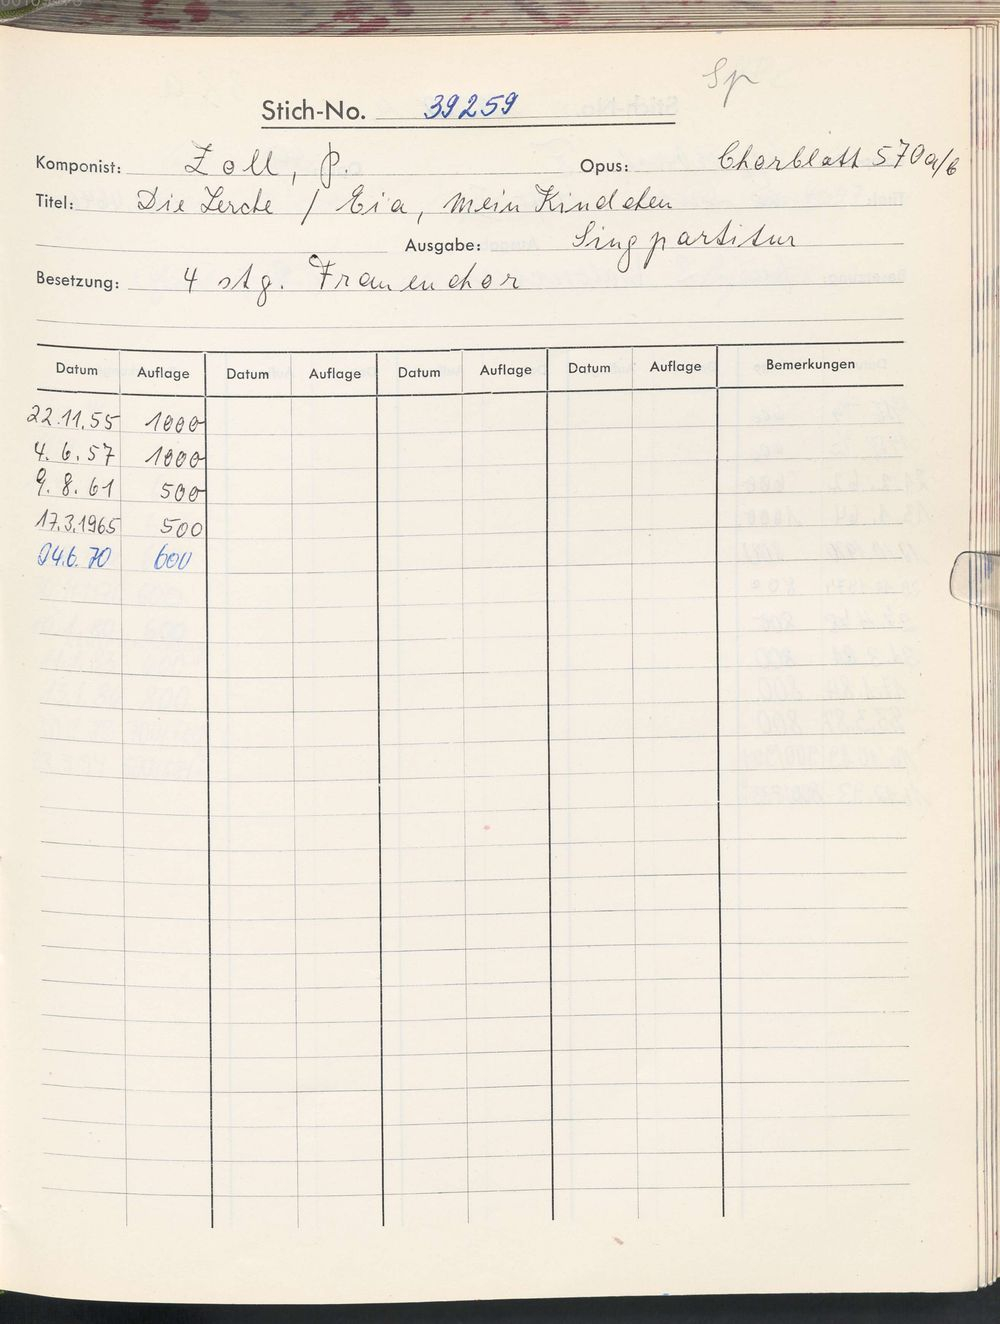 Sp
Stich-No. 39259
Komponist: Zoll, P. Opus: Chorblatt 570 a/b
Titel: Die Lerche / Eia, mein Kindchen
Ausgabe: Singpartitur
Besetzung: 4 stg. Frauenchor
Datum Auflage Datum Auflage Datum Auflage Datum Auflage Bemerkungen
22.11.55 1000
4.6.57 1000
9.8.61 500
17.3.1965 500
04.6.70 600